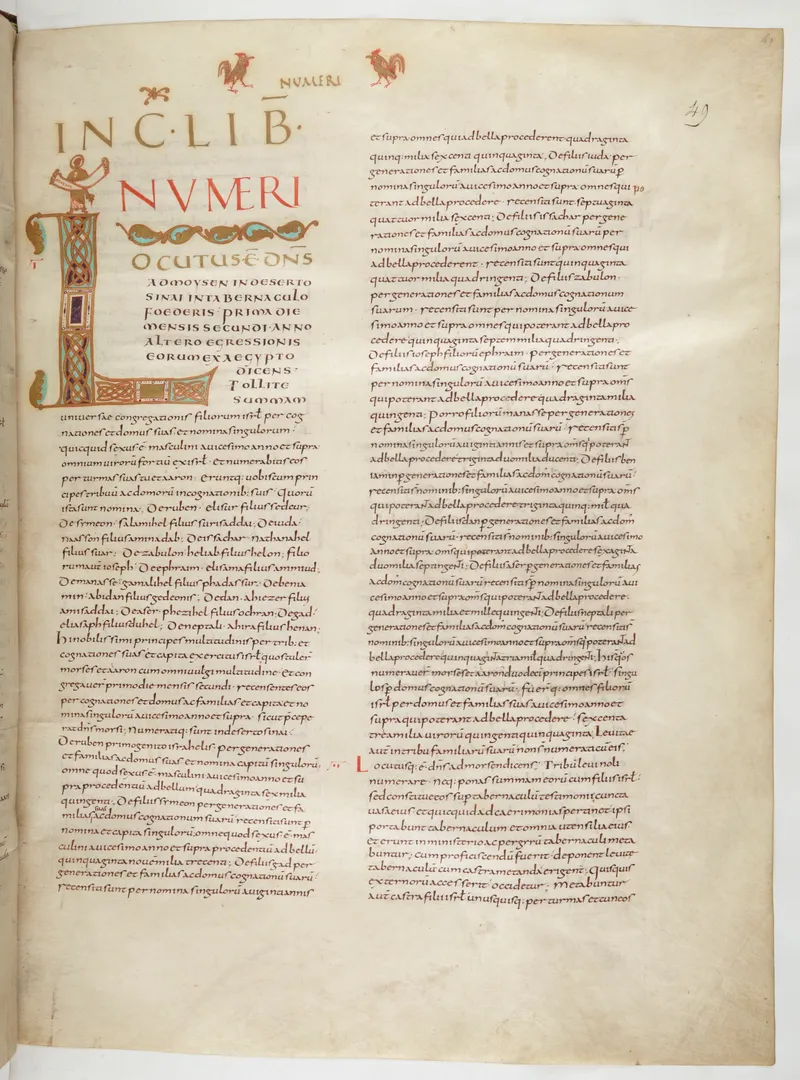 NUMERI
49
INC̄·LIB̄·
NVMERI
LOCUTUS E̅ DN̄S
AD MOYSEN IN DESERTO
SINAI IN TABERNACULO
FOEDERIS· PRIMA DIE
MENSIS SECUNDI· ANNO
ALTERO EGRESSIONIS
EORUM EX AEGYPTO
DICENS·
TOLLITE
SUMMAM
uniuersae congregationis filiorum isrł per cog
nationes et domus suas et nomina singulorum·
quicquid sexus ē masculini a uicesimo anno et supra
omnium uirorū fortiū ex isrł· et numerabitis eos
per turmas suas tu et aaron· eruntq: uobiscum prin
cipes tribuū ac domorū in cognationib: suis· Quorū
ista sunt nomina; De ruben· elisur filius sedeur;
De symeon· salamihel filius surisaddai; De iuda·
naasson filius aminadab; De issachar· nathanahel
filius suar; De zabulon· heliab filius helon; filio
rum aūt ioseph· De ephraim· elisama filius ammiud;
De manasse· gamalihel filius phadassur; De benia
min· abidan filius gedeonis; De dan· ahiezer filius
amisaddai; De aser· phegihel filius ochran; De gad·
eliasaph filius duhel; De neptali· ahira filius henan;
hi nobilissimi principes multitudinis per trib: et
cognationes suas et capita exercitus isrł quos tuler̄
moyses et aaron cum omni uulgi multitudine· et con
gregauer̄ primo die mensis secundi· recensentes eos
per cognationes et domus ac familias et capita et no
mina singulorū a uicesimo anno et supra· sicut p̄cepe
rat dn̄s moysi; Numeratiq: sunt in deserto sinai·
De ruben primogenito israhelis· per generationes
et familias ac domus suas et nomina capitū singulorū·
omne quod sexus ē masculini a uicesimo anno et su
pra procedentiū ad bellum quadraginta sex milia
quingenti; De filiis symeon per generationes et fa
milias ac domus cognationum suarū recensiti sunt p
nomina et capita singulorū omne quod sexus ē mas
culini a uicesimo anno et supra procedentiū ad bellū·
quinquaginta nouem milia trecenti; De filiis gad per
generationes et familias ac domus cognationū suarū·
recensiti sunt per nomina singulorū a uiginti annis
et supra omnes qui ad bella procederent quadraginta
quinq: milia sexcenti quinquaginta; De filiis iuda per
generationes et familias ac domus cognationū suarū p
nomina singulorū a uicesimo anno et supra omnes qui po
terant ad bella procedere· recensiti sunt septuaginta
quattuor milia sexcenti; De filiis issachar per gene
rationes et familias ac domus cognationū suarū per
nomina singulorū a uicesimo anno et supra omnes qui
ad bella procederent· recensiti sunt quinquaginta
quattuor milia quadringenti; De filiis zabulon·
per generationes et familias ac domus cognationum
suarum· recensiti sunt per nomina singulorū a uice
simo anno et supra omnes qui poterant ad bella pro
cedere quinquaginta septem milia quadringenti;
De filiis ioseph filiorū ephraim· per generationes et
familias ac domus cognationū suarū· recensiti sunt
per nomina singulorū a uicesimo anno et supra om̄s
qui poterant ad bella procedere quadraginta milia
quingenti; Porro filiorū manasse per generationes
et familias ac domus cognationū suarū· recensiti s̄ p
nomina singulorū a uiginti annis et supra om̄s q̄ poterant
ad bella procedere triginta duo milia ducenti; De filiis ben
iamin p generationes et familias ac dom̄ cognationū suarū·
recensiti s̄ nominib: singulorū a uicesimo anno et supra om̄s
qui poterant ad bella procedere triginta quinq: mił qua
dringenti; De filiis dan p generationes et familias ac dom̄
cognationū suarū· recensiti s̄ nominib: singulorū a uicesimo
anno et supra· om̄s qui poterant ad bella procedere sexaginta
duo milia septingenti; De filiis aser p generationes et familias
ac dom̄ cognationū suarū recensiti s̄ p nomina singulorū a ui
cesimo anno et supra om̄s qui poterant ad bella procedere·
quadraginta milia et mille quingenti; De filiis neptali per
generationes et familias ac dom̄ cognationū suarū· recensiti s̄
nominib: singulorū a uicesimo anno et supra om̄s q̄ poterant ad
bella procedere quinquaginta tria mił quadringenti; hi s̄ q̄s
numerauer̄ moyses et aaron et duodeci principes isrł· singu
los p domus cognationū suarū; fuer̄q: omnes filiorū
isrł per domus et familias suas a uicesimo anno et
supra qui poterant ad bella procedere· sexcenta
tria milia uirorū quingenti quinquaginta; Leuitae
aūt in tribu familiarū suarū non s̄ numerati cū eis;
Locutusq: ē dn̄s ad moysen dicens; Tribū leui noli
numerare· neq: ponas summam eorū cum filiis isrł·
sed constitue eos sup tabernaculū testimonii cuncta
uasa eius et quicquid ad caerimonias pertinet· ipsi
portabunt tabernaculum et omnia utensilia eius
et erunt in ministerio ac per gyrū tabernaculi meta
buntur; cum proficiscendū fuerit· deponent leuitae
tabernaculū· cum castrametandū erigent; Quisquis
externorū accesserit· occidetur; Metabuntur
aūt castra filii isrł unusquisq: per turmas et cuneos